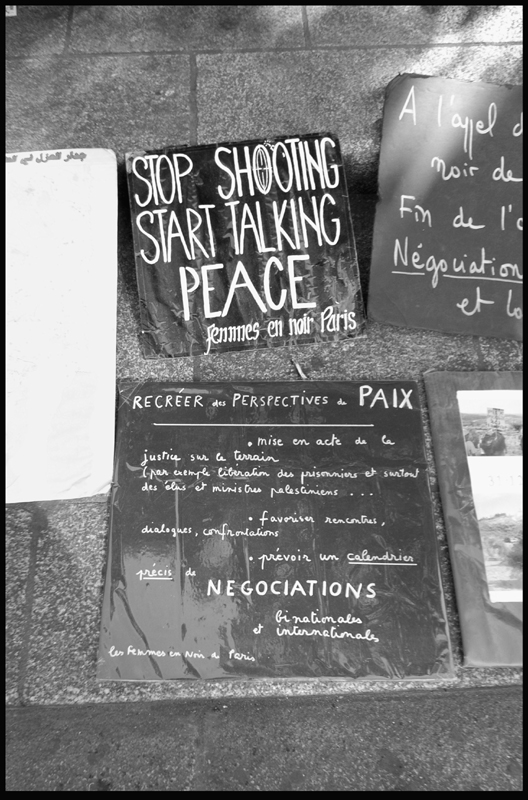 STOP SHOOTING
START TALKING
PEACE
femmes en noir Paris
A l'appel d
noir de
Fin de l'o
Négociation
et lo
RECRÉER des PERSPECTIVES de PAIX
• mise en acte de la
justice sur le terrain
(par exemple libération des prisonniers et surtout
des élus et ministres palestiniens ...
• favoriser rencontres,
dialogues, confrontations
• prévoir un calendrier
précis de
NEGOCIATIONS
binationales
et internationales
les Femmes en Noir de Paris